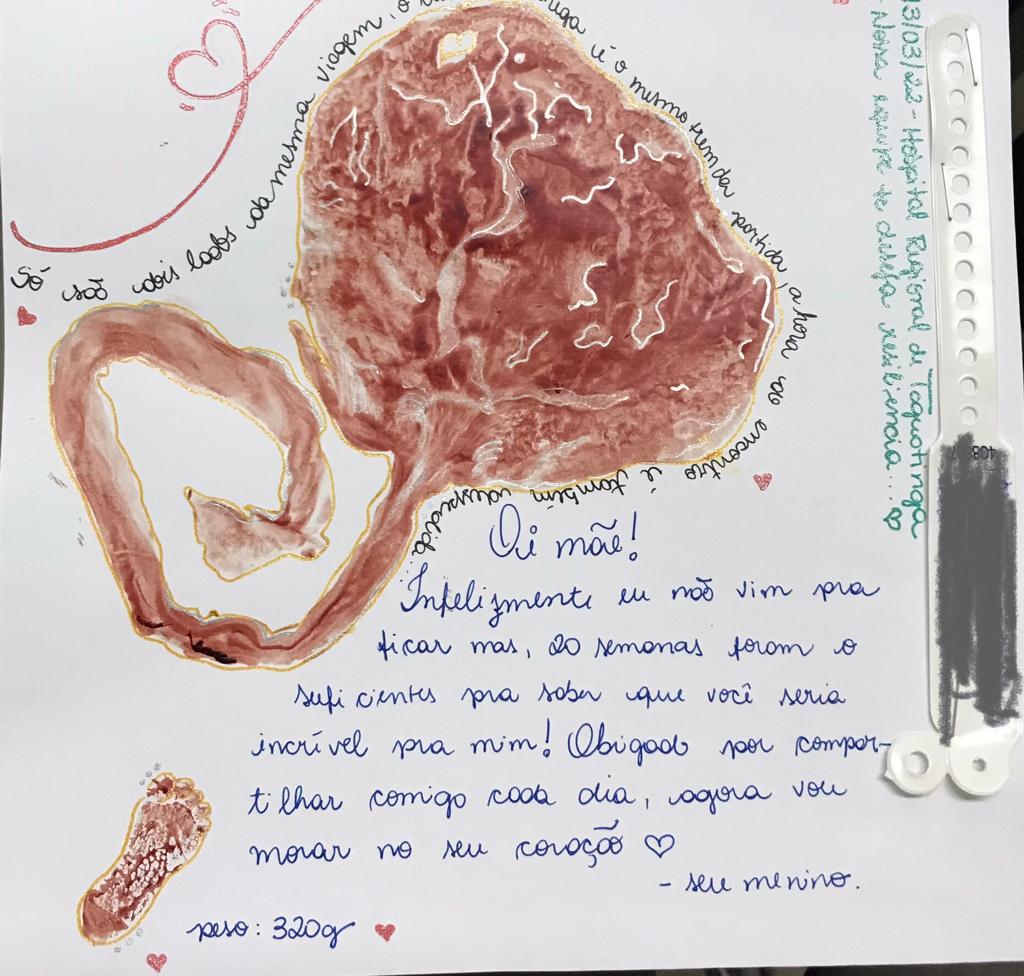 Só são dois lados da mesma viagem, o
é o mesmo trem da partida, a hora do encontro é também despedida.
13/03/22 - Hospital Regional de Taguatinga
- Nossa equipe te deseja resiliência...
Oi mãe!
Infelizmente eu não vim pra
ficar mas, 20 semanas foram o
suficientes pra saber que você seria
incrível pra mim! Obigado por compar-
tilhar comigo cada dia, agora vou
morar no seu coração
- seu menino.
peso: 320g